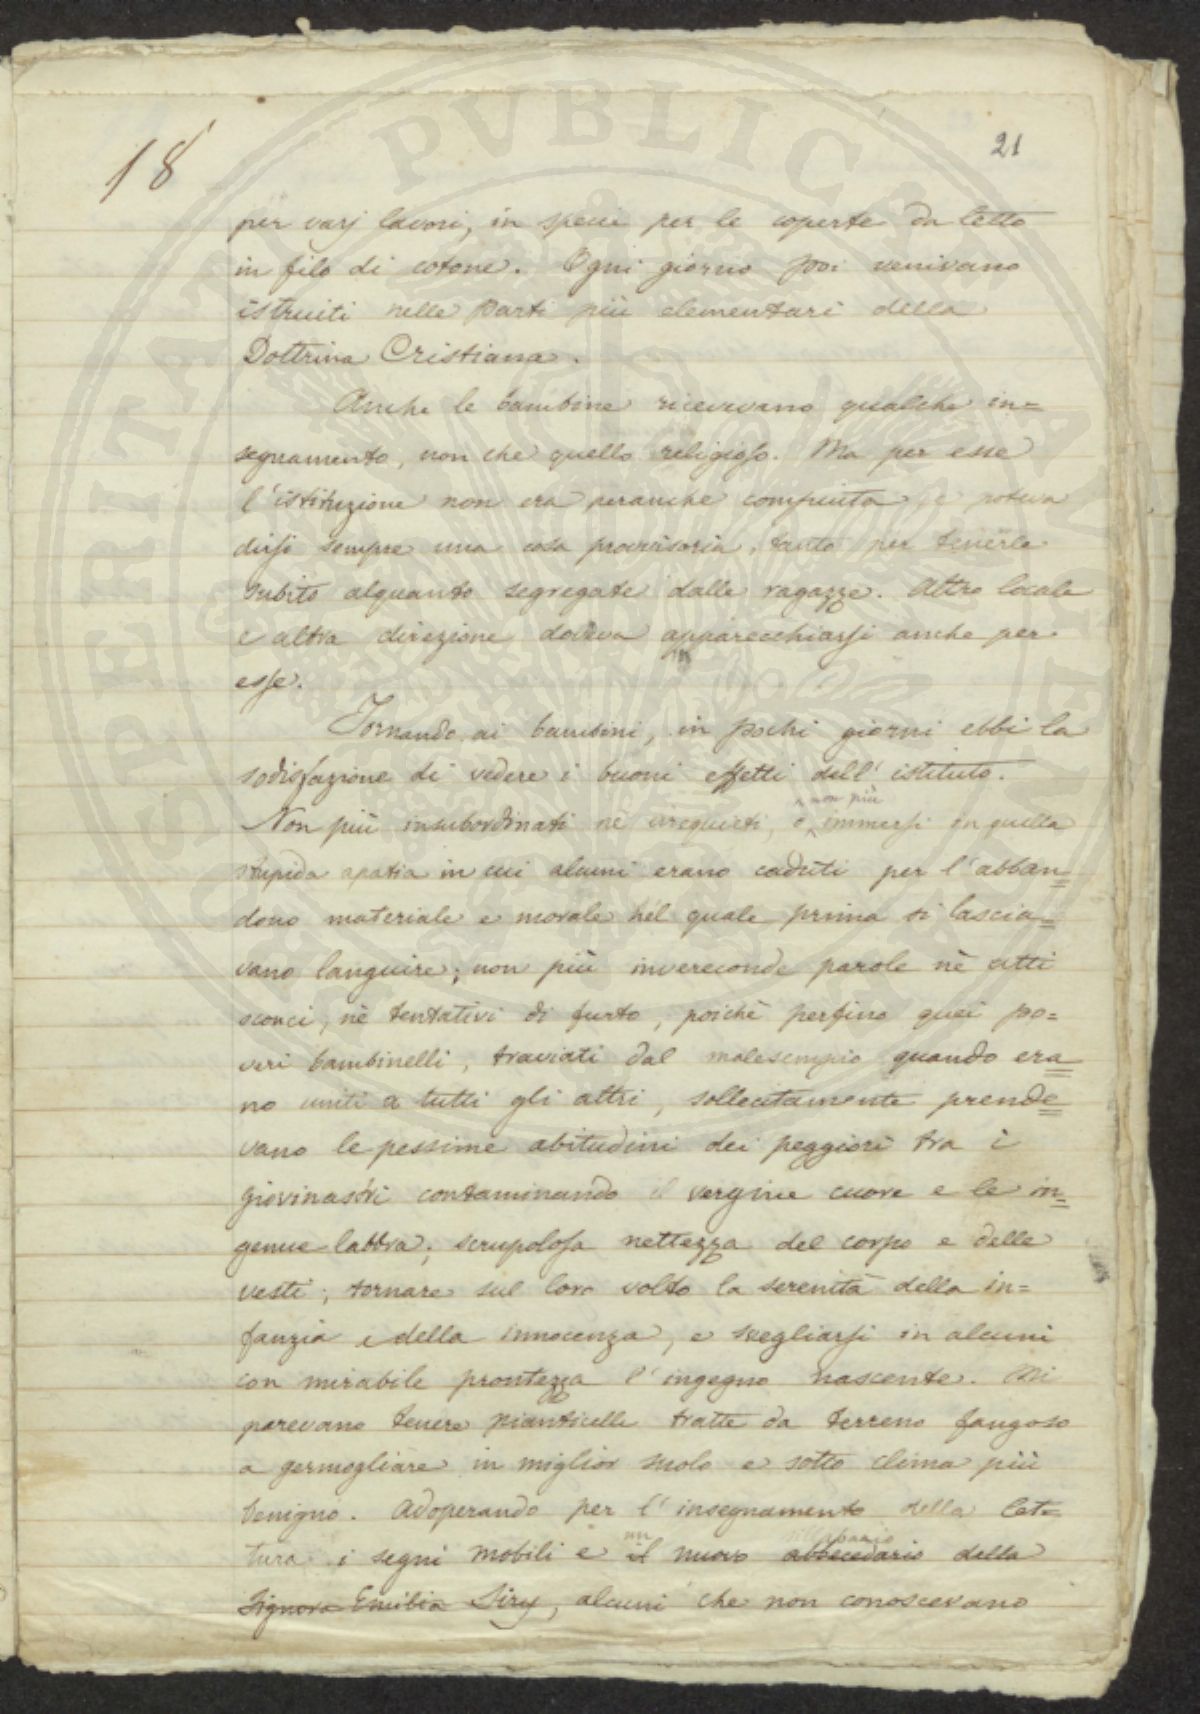 18
21
per varj lavori, in specie per le coperte da letto
in filo di cotone. Ogni giorno poi venivano
istruiti nelle parti più elementari della
Dottrina Cristiana.
Anche le bambine ricevevano qualche in=
segnamento, non che quello religioso. Ma per esse
l'istituzione non era peranche compiuta e poteva
dirsi sempre una cosa provvisoria, tanto per tenerle
subito alquanto segregate dalle ragazze. Altro locale
e altra direzione doveva apparecchiarsi anche per
esse.
Tornando ai bambini, in pochi giorni ebbi la
sodisfazione di vedere i buoni effetti dell'istituto.
non più
Non più insubordinati nè irrequieti, o immersi in quella
stupida apatia in cui alcuni erano caduti per l'abban=
dono materiale e morale nel quale prima si lascia=
vano languire; non più invereconde parole nè atti
sconci, nè tentativi di furto, poichè perfino quei po=
veri bambinelli, traviati dal malesempio quando era=
no uniti a tutti gli altri, sollecitamente prende=
vano le pessime abitudini dei peggiori tra i
giovinastri contaminando il vergine cuore e le in=
genue labbra; scrupolosa nettezza del corpo e delle
vesti; tornare sul loro volto la serenità della in=
fanzia e della innocenza, e svegliarsi in alcuni
con mirabile prontezza l'ingegno nascente. Mi
parevano tenere pianticelle tratte da terreno fangoso
a germogliare in miglior suolo e sotto clima più
benigno. Adoperando per l'insegnamento della let=
un sillabario
tura i segni mobili e il nuovo abbecedario della
Signora Emilia Siry, alcuni che non conoscevano
PROSPERITATI PVBLICAE AVGENDAE